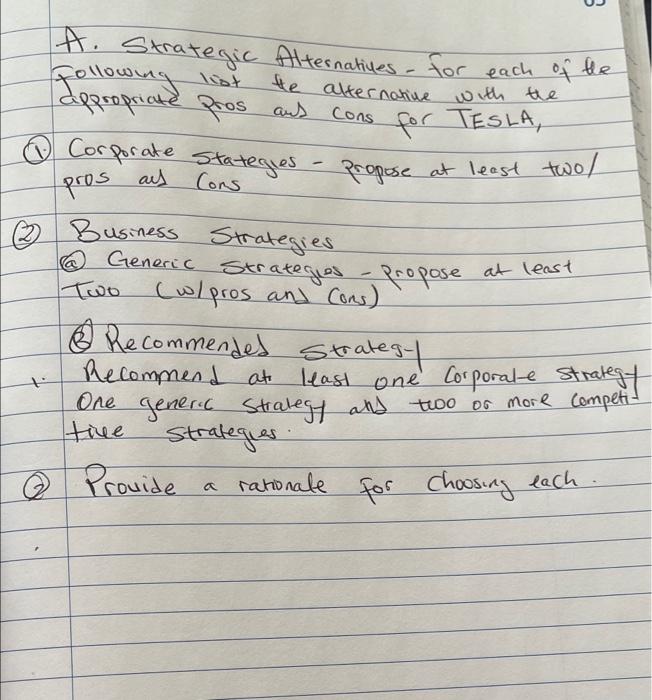 A. Strategic Alternatives - for each of the
Following list the alternative with the
appropriate pros and cons for TESLA,
① Corporate Stategies - propose at least two/
pros and Cons
② Business Strategies
ⓐ Generic Strategies - propose at least
Two (w/pros and Cons)
Ⓑ Recommended Strategy
1. Recommend at least one Corporate Strategy
One generic Strategy and two or more competi-
tive Strategies.
② Provide a rationale for Choosing each.